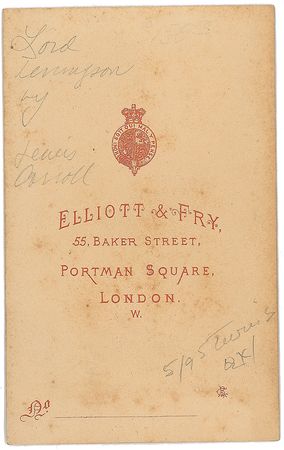 Lord
Tennyson
by
Lewis
Carroll
HONI SOIT QUI MAL Y PENSE
ELLIOTT & FRY,
55, BAKER STREET,
PORTMAN SQUARE,
LONDON.
W.
5/95
No